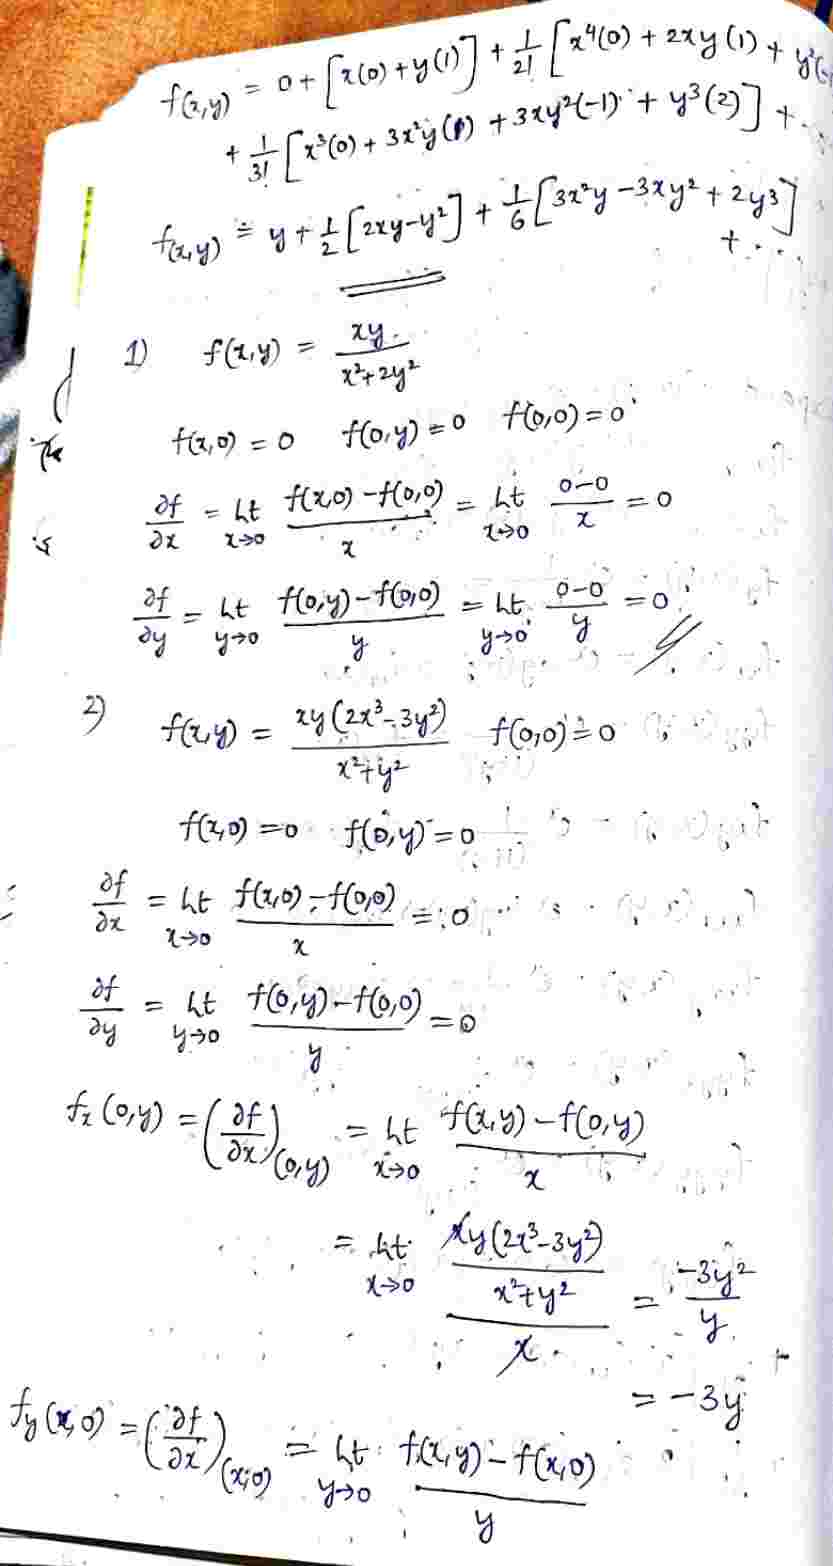 f(x,y) = 0 + [x(0) + y(1)] + 1/2! [x⁴(0) + 2xy(1) + y²(-
+ 1/3! [x³(0) + 3x²y(1) + 3xy²(-1) + y³(2)] + ...
f(x,y) = y + 1/2 [2xy - y²] + 1/6 [3x²y - 3xy² + 2y³]
+ ...
1) f(x,y) = xy / x² + 2y²
f(x,0) = 0 f(0,y) = 0 f(0,0) = 0
∂f/∂x = Lt x→0 f(x,0) - f(0,0) / x = Lt x→0 0-0 / x = 0
∂f/∂y = Lt y→0 f(0,y) - f(0,0) / y = Lt y→0 0-0 / y = 0
2) f(x,y) = xy(2x³ - 3y²) / x² + y² f(0,0) = 0
f(x,0) = 0 f(0,y) = 0
∂f/∂x = Lt x→0 f(x,0) - f(0,0) / x = 0
∂f/∂y = Lt y→0 f(0,y) - f(0,0) / y = 0
fx (0,y) = (∂f/∂x)(0,y) = Lt x→0 f(x,y) - f(0,y) / x
= Lt x→0 xy(2x³ - 3y²) / x² + y² / x = -3y² / y
= -3y
fy (x,0) = (∂f/∂x)(x,0) = Lt y→0 f(x,y) - f(x,0) / y